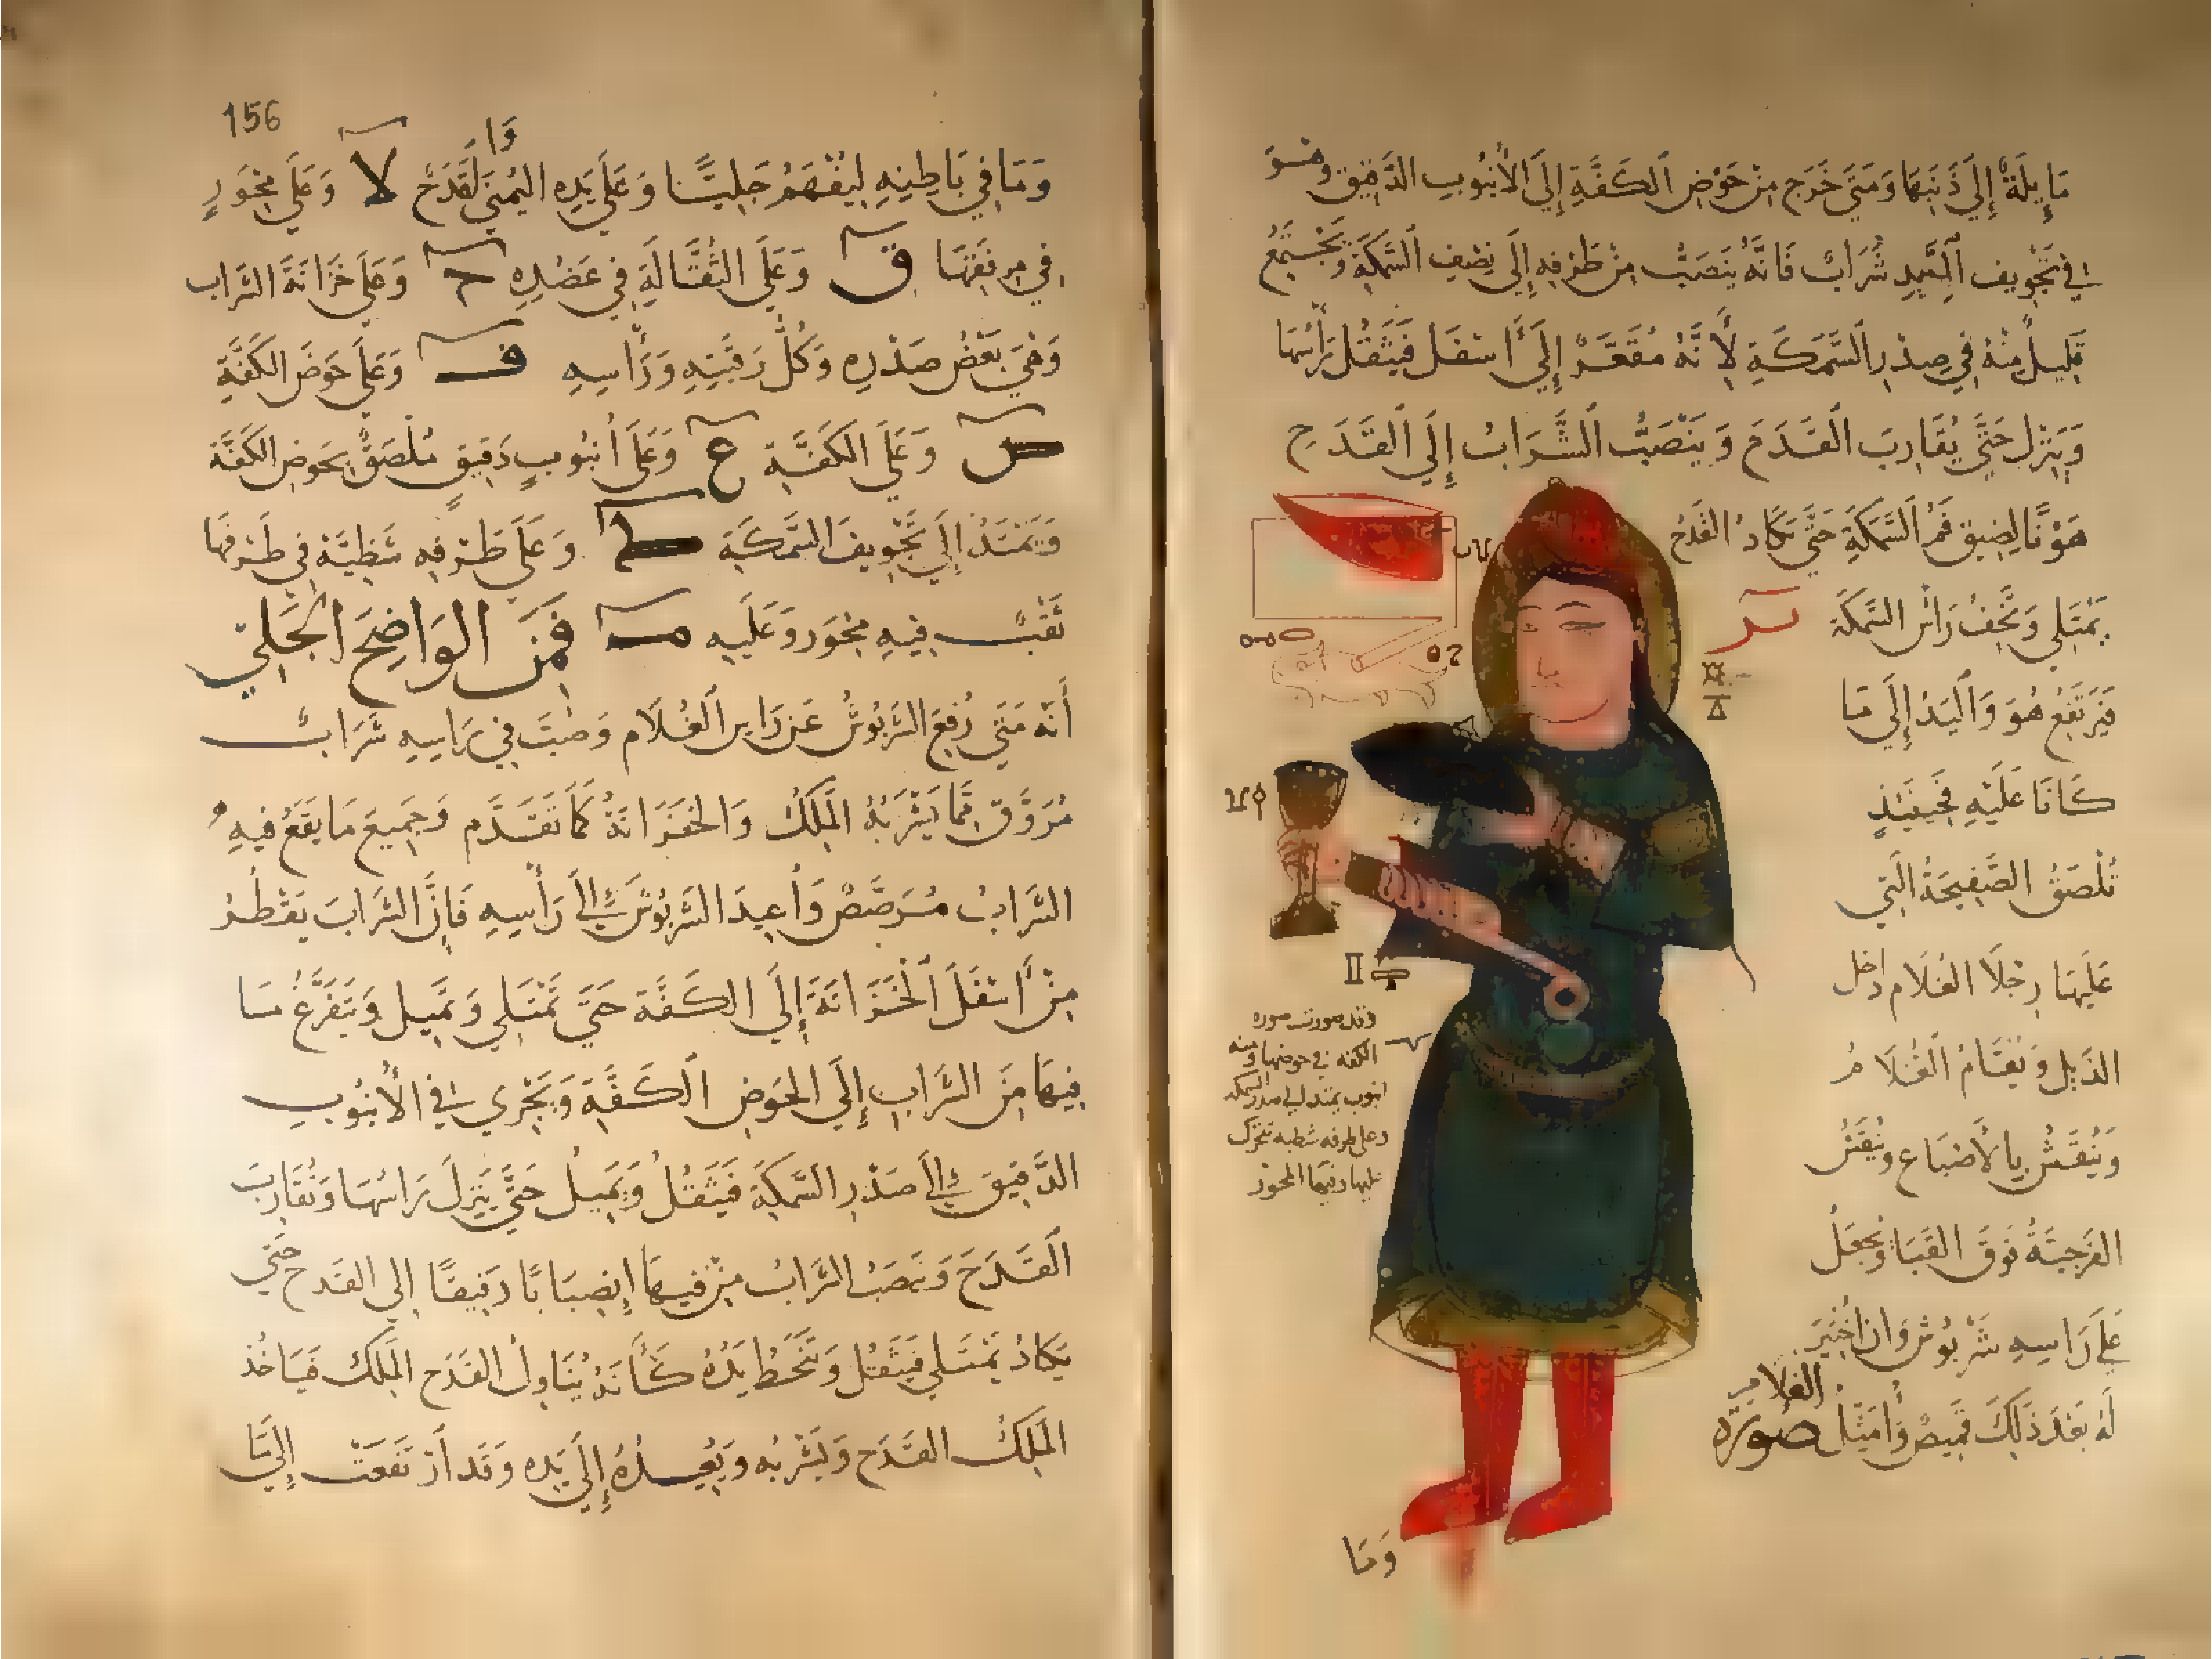 مَايِلَةٌ إِلَى ذَنَبِهَا وَمَتَى خَرَج مِنْ حَوْضِ الكَفَّةِ إِلَى الأُنْبُوبِ الدَّقِيقِ وَهُوَ
فِي تَجْوِيف اليَدِ شَرَابٌ فَانَّهُ يَنصَبُّ مِنْ طَرَفِهِ إِلَى نِصْفِ السَّمَكَةِ وَيَجْتَمِعُ
قَلِيلٌ مِنْهُ فِي صَدْرِ السَّمَكَةِ لِأَنَّهُ مُقَعَّرٌ إِلَى أَسْفَل فَيَثْقُلُ رَأْسُهَا
وَيَنْزِل حَتَّى يُقَارِبَ القَدَحَ وَيَنْصَبُّ الشَّرَابُ إِلَى القَدَحِ
هَوْنًا لِضِيقِ فَمِ السَّمَكَةِ حَتَّى يَكَادُ القَدَحُ
يَمْتَلِي وَيَخِفُّ رَأْسُ السَّمَكَة
فَيَرْتَفِعُ هُوَ وَاليَدُ إِلَى مَا
كَانَا عَلَيْهِ فَحِينَئِذٍ
تُلْصَقُ الصَّفِيحَةُ الَّتِي
عَلَيْهَا رِجْلَا الغُلَام دَاخل
الذَّيْلِ وَيُقَامُ الغُلَامُ
وَيُنْقَشُ بِالأَصْبَاغ وَيُنْقَشُ
الفَرَجِيَّةُ فَوقَ القَبَا وَيُجْعَلُ
عَلَى رَاسِهِ شَرْبُوش وَان اخْتِيرَ
لَهُ بَعْدَ ذَلِكَ قَمِيصٌ وَأُمَثِّلُ صُورَة
الغُلَامِ
وقد صورت صوره
الكفه في حوضها ومنه
انبوب يمتد الى صدر السمكه
وعلى طرفه شظيه تتحرك
عليها وفيها المحور
وَمَا
156
وَمَا فِي بَاطِنِهِ لِيُفْهَمُ جَلِيًّا وَعَلَى يَدِهِ اليُمْنَى وَالقَدَح لا وَعَلَى مِحْوَرٍ
فِي مِرفَقِهَا ق وَعَلَى الثَّقَّالَةِ فِي عَضُدِهِ ح وَعَلَى خَزَانَةَ الشَّرَاب
وَهِيَ بَعْضُ صَدْرِهِ وَكُلُّ رَقَبَتِهِ وَرَأْسِهِ ف وَعَلَى حَوْضَ الكَفَّةِ
س وَعَلَى الكَفَّةِ ع وَعَلَى أُنْبُوبٍ دَقِيقٍ مُلْصَقٍ بِحَوضِ الكَفَّة
وَيَمْتَدُّ إِلَى تَجْوِيفَ السَّمَكَةِ ط وَعَلَى طَرَفِهِ شَظِيَّة فِي طَرَفِهَا
ثَقْبٌ فِيهِ مِحْوَر وَعَلَيهِ ص فَمِنَ الوَاضِحِ الجَلِيِّ
أَنَّه مَتَى رُفِعَ الشَّرْبُوشُ عَن رَاسِ الغُلَام وَصُبَّ فِي رَاسِهِ شَرَابٌ
مُرَوَّق مِمَّا يَشْرَبُهُ المَلِكُ وَالخَزَانَةُ كَمَا تَقَدَّم وَجَمِيعَ مَا يَقَعُ فِيهِ
الشَّرَابُ مُرَصَّصٌ وَأُعِيدَ الشَّرْبُوش إِلَى رَأْسِهِ فَإِنَّ الشَّرَابَ يَقْطُرُ
مِنْ أَسْفَلَ الخَزَانَةَ إِلَى الكَفَّة حَتَّى تَمْتَلِي وَتَمِيل وَيَتَفَرَّغُ مَا
فِيهَا مِنَ الشَّرَابِ إِلَى الحَوضِ الكَفَّةِ وَيَجْرِي فِي الأُنْبُوبِ
الدَّقِيق إِلَى صَدْرِ السَّمَكَةِ فَيَثْقُلُ وَيَمِيلُ حَتَّى يَنْزِلَ رَاسُهَا وَتُقَارِبَ
القَدَحَ وَيَنصَبُّ الشَّرَابُ مِنْ فِيهَا إِنْصِبَابًا دَقِيقًا إِلى القَدح حَتَّى
يَكَادُ يَمْتَلِي فَيَثْقُل وَتَنْحَطُ يَدُهُ كَأَنَّهُ يُنَاوِلُ القَدَح المَلِكَ فَيَاخُذ
المَلِكُ القَدَح وَيَشْرَبُه وَيُعِيدُهُ إِلَى يَدِهِ وَقَد ارْتَفَعَتْ إِلَى مَا